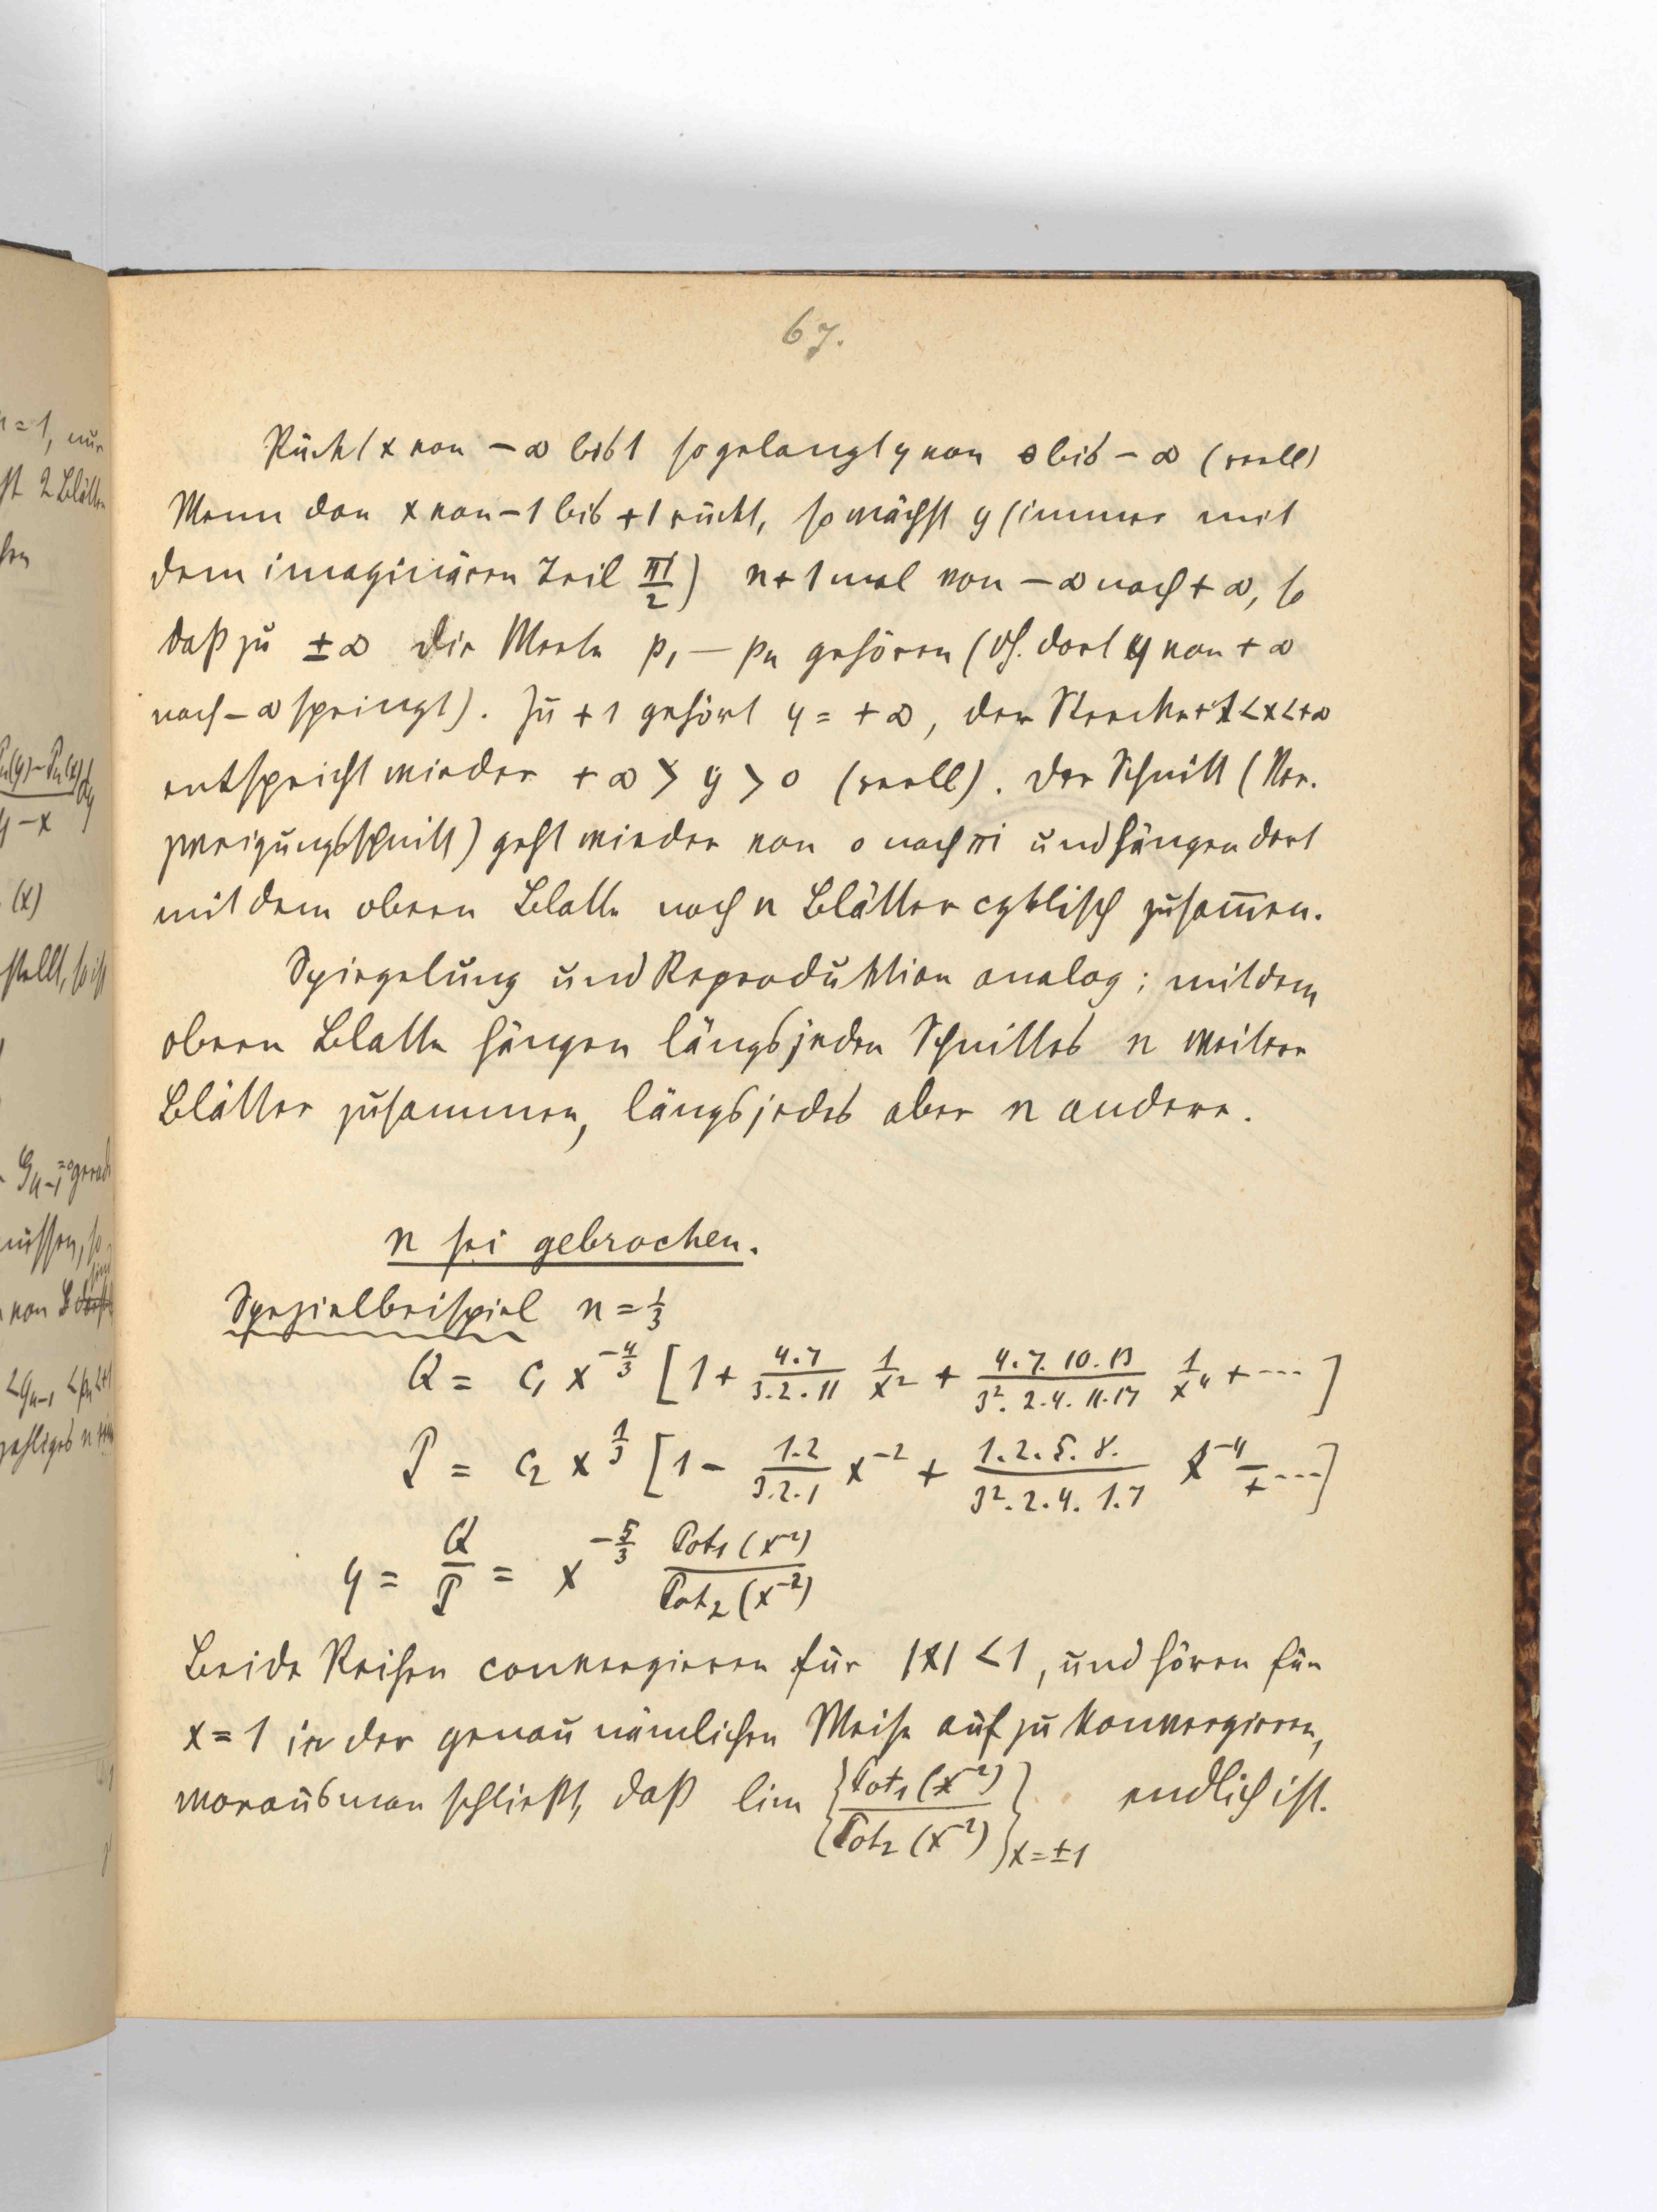 67.
Rückt x von - ∞ bis 1 so gelangt y von 0 bis - ∞ (reell)
Wenn dan x von - 1 bis + 1 rückt, so wächst y (immer mit
dem imaginären Teil πi/2) n + 1 mal von - ∞ nach + ∞, so
daß zu ± ∞ die Werte p₁ — pₙ gehören (dh. dort y von + ∞
nach - ∞ springt). Zu + 1 gehört y = + ∞, der Strecke + 1 < x < + ∞
entspricht wieder + ∞ > y > 0 (reell). Der Schnitt (Ver-
zweigungsschnitt) geht wieder von 0 nach πi und hängen dort
mit dem obern Blatte noch n Blätter cyklisch zusam̅en.
Spiegelung und Reproduktion analog; mit dem
obern Blatte hängen längs jeden Schnittes n weitere
Blätter zusammen, längs jedes aber n andere.
n sei gebrochen.
Spezialbeispiel n = 1/3
Q = c₁ x^{-4/3} [1 + 4.7/3.2.11 1/x² + 4.7.10.13/3².2.4.11.17 1/x⁴ + ---]
P = c₂ x^{1/3} [1 - 1.2/3.2.1 x⁻² + 1.2.5.8./3².2.4.1.7 x⁻⁴ -/+ ---]
y = Q/P = x^{-5/3} Pot₁(x⁻²)/Pot₂(x⁻²)
Beide Reihen convergieren für |x| < 1, und hören für
x = 1 in der genau nämlichen Weise auf zu konvergieren,
woraus man schließt, daß lim {Pot₁(x⁻²)/Pot₂(x⁻²)}x=±1 endlich ist.